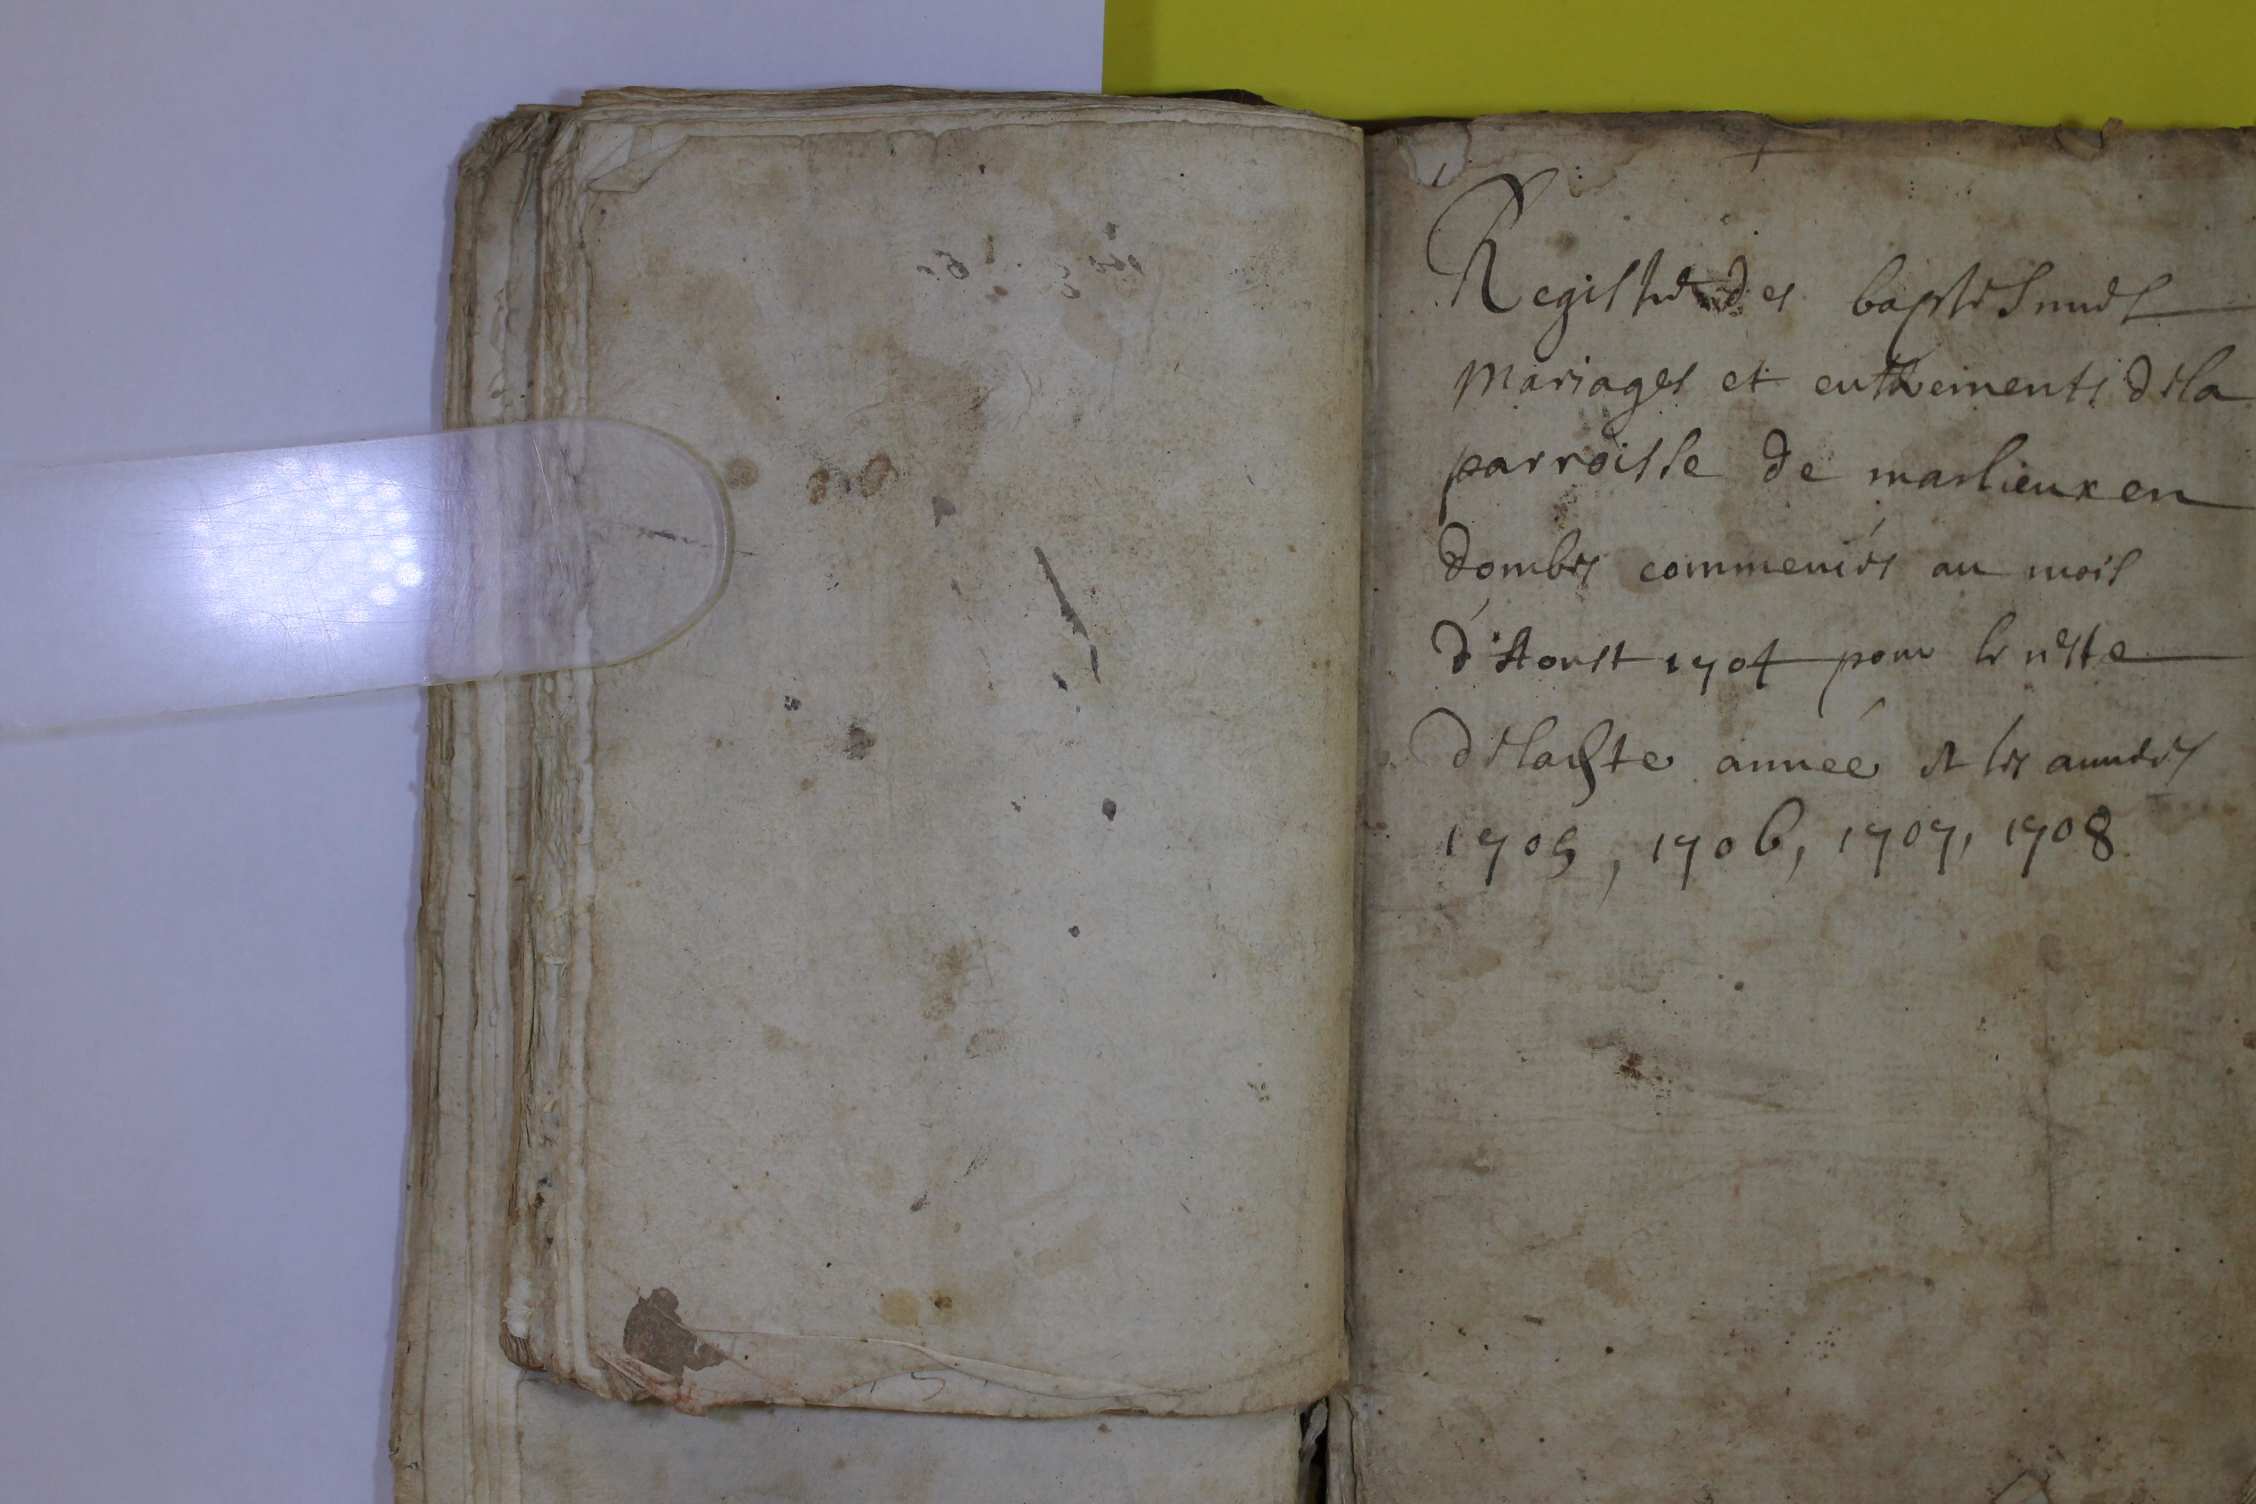 Registre des baptesmes
mariages et enthrements dela
parroisse de marlieux en
dombes commencés au mois
d'Aoust 1704 pour le reste
deladte année et les années
1705, 1706, 1707, 1708